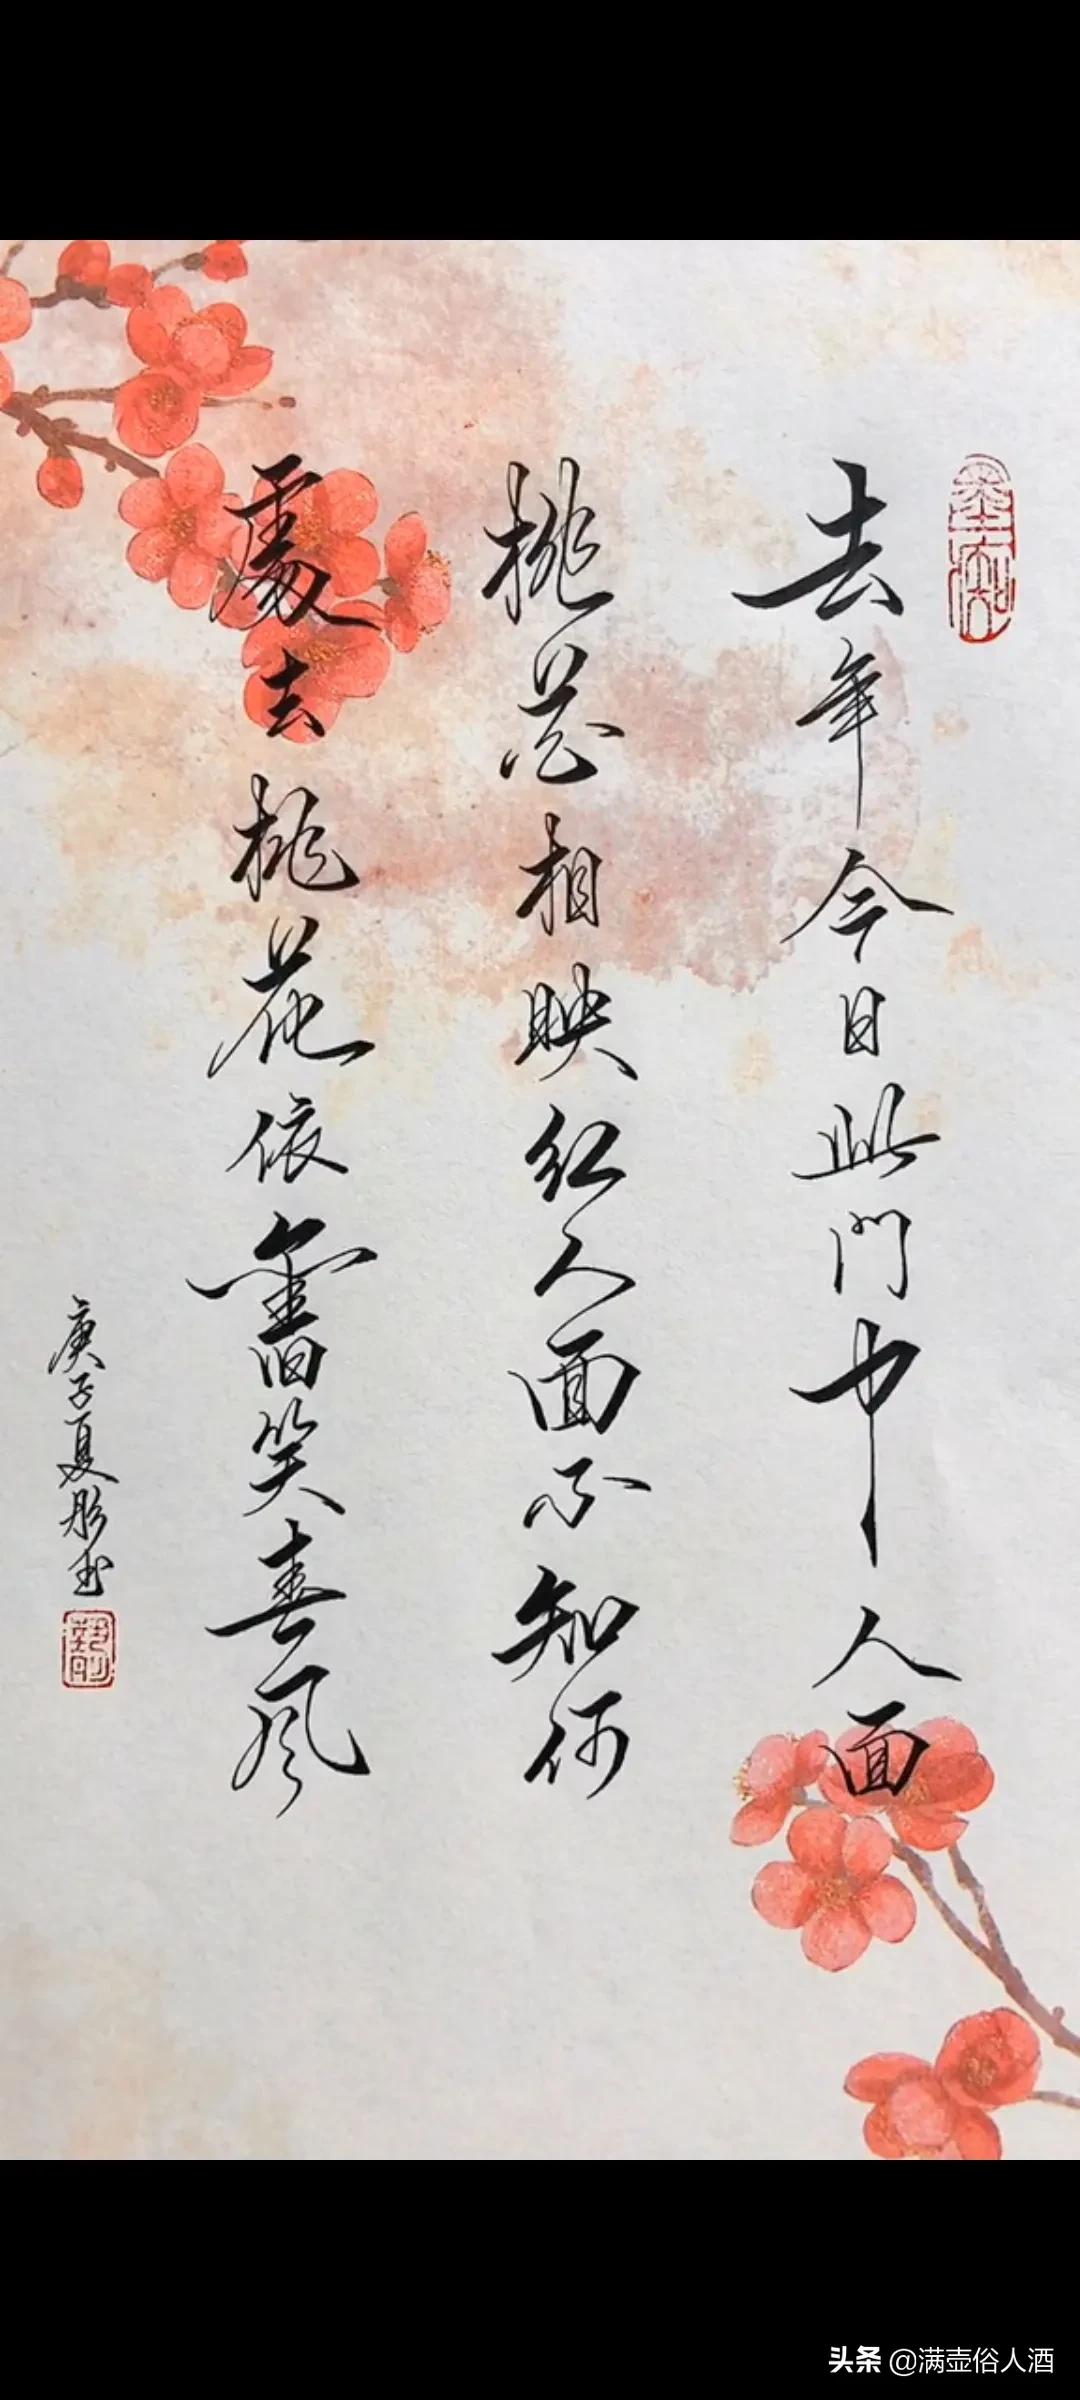 去年今日此門中人面
桃花相映红人面不知何
處去桃花依舊笑春風
庚子夏彤书
头条 @满壶俗人酒